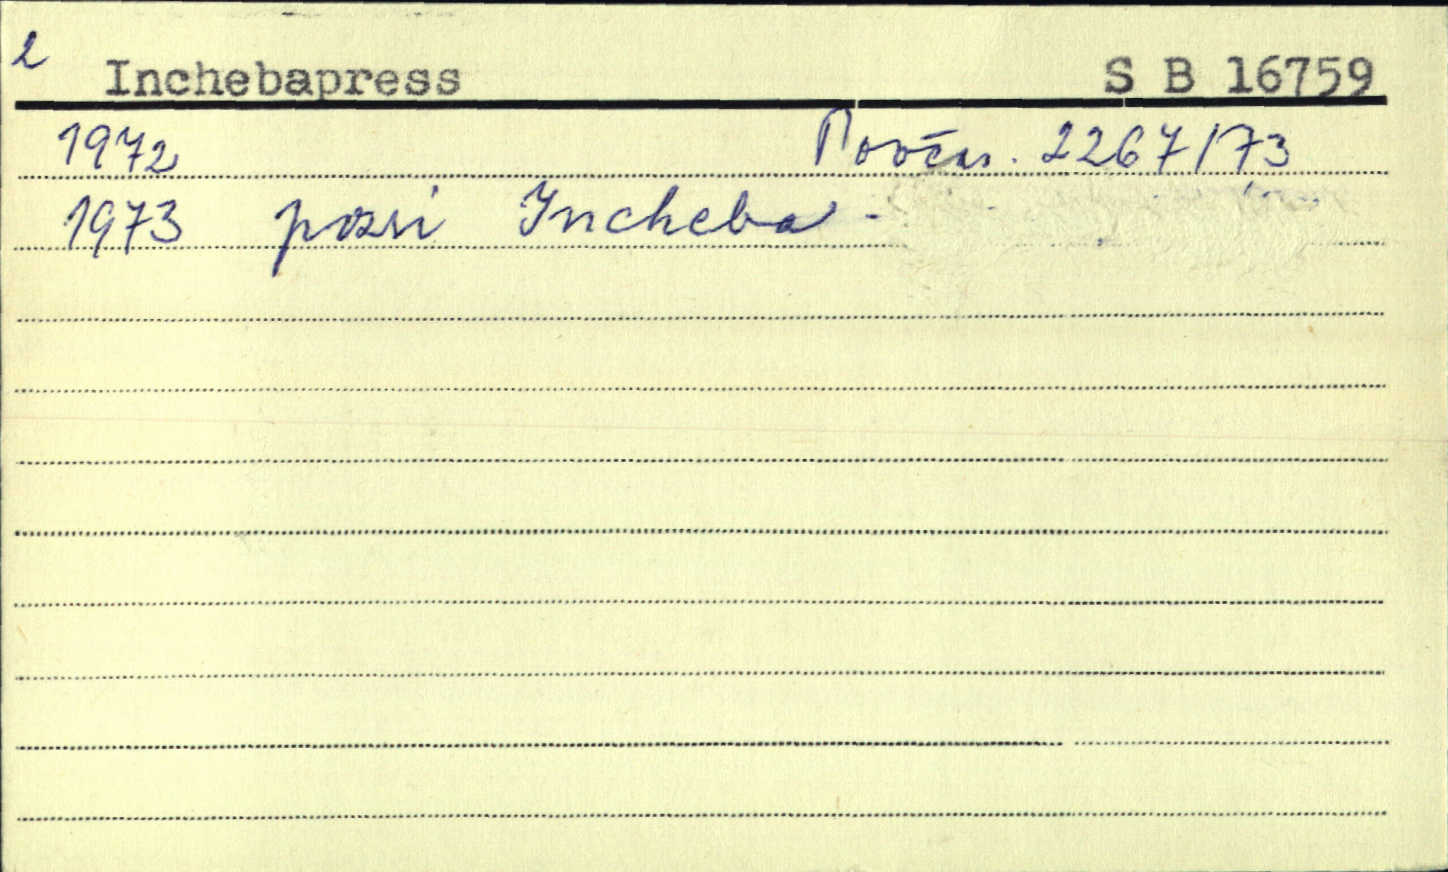 2 Inchebapress S B 16759
1972 Povčas. 2267/73
1973 pozri Incheba -